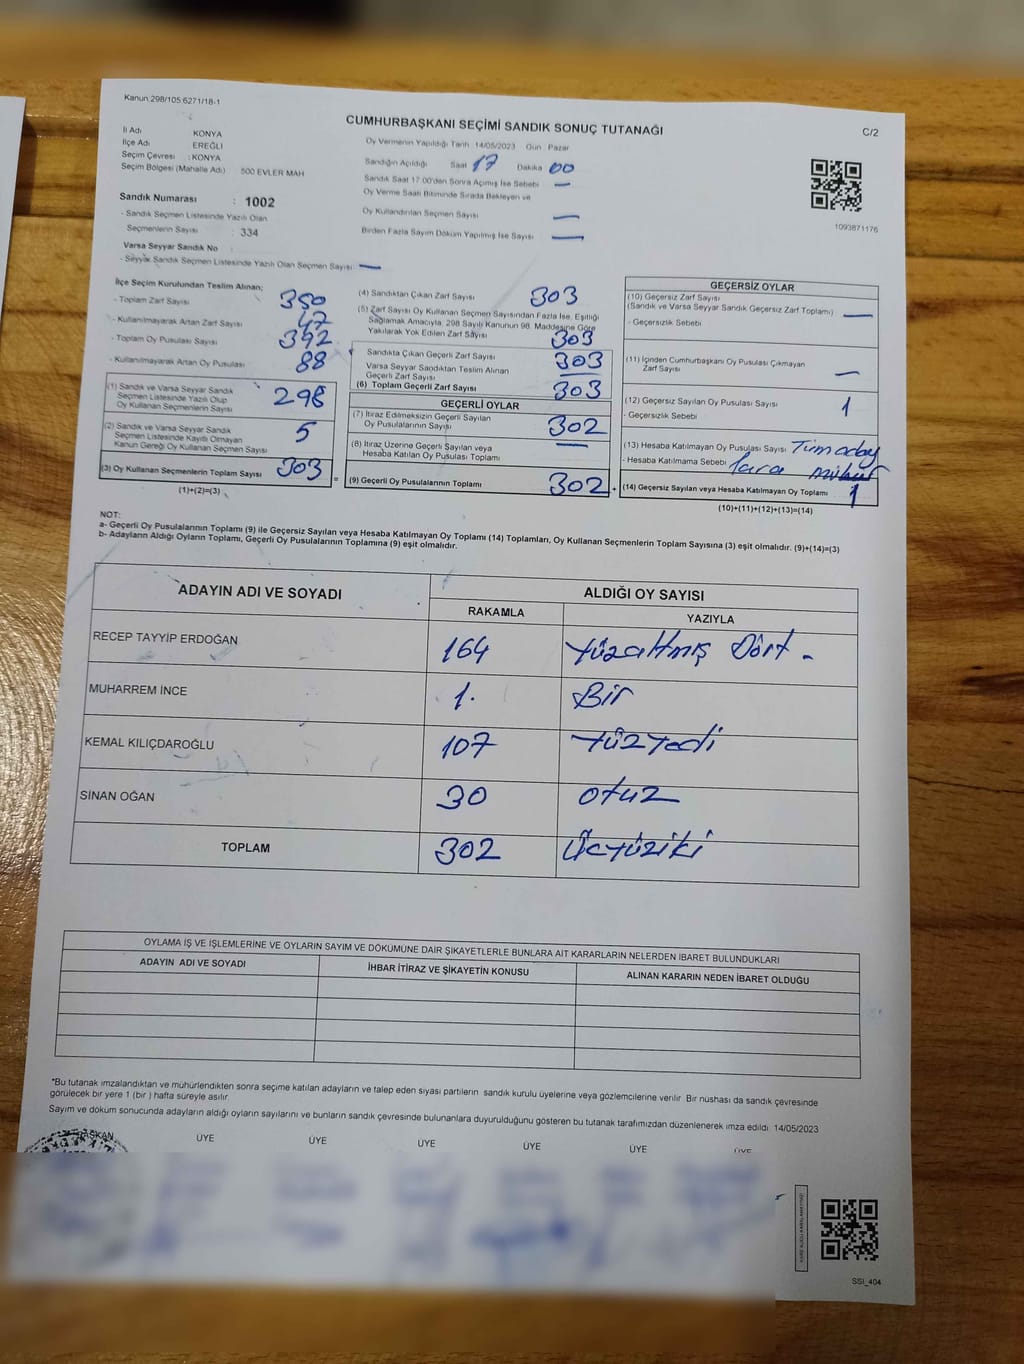 Kanun:298/105 6271/18-1
CUMHURBAŞKANI SEÇİMİ SANDIK SONUÇ TUTANAĞI
C/2
İl Adı KONYA
İlçe Adı EREĞLİ
Seçim Çevresi : KONYA
Seçim Bölgesi (Mahalle Adı) 500 EVLER MAH
Oy Vermenin Yapıldığı Tarih 14/05/2023 Gün Pazar
Sandığın Açıldığı Saat 17 Dakika 00
Sandık Saat 17:00'den Sonra Açımış İse Sebebi —
Oy Verme Saati Bitiminde Sırada Bekleyen ve
Oy Kullandırılan Seçmen Sayısı —
Birden Fazla Sayım Döküm Yapılmış İse Sayısı —
1093871176
Sandık Numarası : 1002
- Sandık Seçmen Listesinde Yazılı Olan
Seçmenlerin Sayısı : 334
Varsa Seyyar Sandık No
- Seyyar Sandık Seçmen Listesinde Yazılı Olan Seçmen Sayısı: —
İlçe Seçim Kurulundan Teslim Alınan;
- Toplam Zarf Sayısı 350
- Kullanılmayarak Artan Zarf Sayısı 47
- Toplam Oy Pusulası Sayısı 392
- Kullanılmayarak Artan Oy Pusulası 88
(1) Sandık ve Varsa Seyyar Sandık
Seçmen Listesinde Yazılı Olup
Oy Kullanan Seçmenlerin Sayısı 298
(2) Sandık ve Varsa Seyyar Sandık
Seçmen Listesinde Kayıtlı Olmayan
Kanun Gereği Oy Kullanan Seçmen Sayısı 5
(3) Oy Kullanan Seçmenlerin Toplam Sayısı 303
(1)+(2)=(3)
(4) Sandıktan Çıkan Zarf Sayısı 303
(5) Zarf Sayısı Oy Kullanan Seçmen Sayısından Fazla İse, Eşitliği
Sağlamak Amacıyla, 298 Sayılı Kanunun 98. Maddesine Göre
Yakılarak Yok Edilen Zarf Sayısı 303
Sandıkta Çıkan Geçerli Zarf Sayısı 303
Varsa Seyyar Sandıktan Teslim Alınan
Geçerli Zarf Sayısı —
(6) Toplam Geçerli Zarf Sayısı 303
GEÇERLİ OYLAR
(7) İtiraz Edilmeksizin Geçerli Sayılan
Oy Pusulalarının Sayısı 302
(8) İtiraz Üzerine Geçerli Sayılan veya
Hesaba Katılan Oy Pusulası Toplamı —
= (9) Geçerli Oy Pusulalarının Toplamı 302 +
GEÇERSİZ OYLAR
(10) Geçersiz Zarf Sayısı
(Sandık ve Varsa Seyyar Sandık Geçersiz Zarf Toplamı) —
- Geçersizlik Sebebi
(11) İçinden Cumhurbaşkanı Oy Pusulası Çıkmayan
Zarf Sayısı —
(12) Geçersiz Sayılan Oy Pusulası Sayısı 1
- Geçersizlik Sebebi
(13) Hesaba Katılmayan Oy Pusulası Sayısı Tüm aday
- Hesaba Katılmama Sebebi lara mühür
(14) Geçersiz Sayılan veya Hesaba Katılmayan Oy Toplamı 1
(10)+(11)+(12)+(13)=(14)
NOT:
a- Geçerli Oy Pusulalarının Toplamı (9) ile Geçersiz Sayılan veya Hesaba Katılmayan Oy Toplamı (14) Toplamları, Oy Kullanan Seçmenlerin Toplam Sayısına (3) eşit olmalıdır. (9)+(14)=(3)
b- Adayların Aldığı Oyların Toplamı, Geçerli Oy Pusulalarının Toplamına (9) eşit olmalıdır.
ADAYIN ADI VE SOYADI ALDIĞI OY SAYISI
RAKAMLA YAZIYLA
RECEP TAYYİP ERDOĞAN 164 Yüzaltmış Dört -
MUHARREM İNCE 1. Bir
KEMAL KILIÇDAROĞLU 107 Yüzyedi
SİNAN OĞAN 30 otuz
TOPLAM 302 Üçyüziki
OYLAMA İŞ VE İŞLEMLERİNE VE OYLARIN SAYIM VE DÖKÜMÜNE DAİR ŞİKAYETLERLE BUNLARA AİT KARARLARIN NELERDEN İBARET BULUNDUKLARI
ADAYIN ADI VE SOYADI İHBAR İTİRAZ VE ŞİKAYETİN KONUSU ALINAN KARARIN NEDEN İBARET OLDUĞU
*Bu tutanak imzalandıktan ve mühürlendikten sonra seçime katılan adayların ve talep eden siyasi partilerin sandık kurulu üyelerine veya gözlemcilerine verilir. Bir nüshası da sandık çevresinde
görülecek bir yere 1 (bir ) hafta süreyle asılır.
Sayım ve döküm sonucunda adayların aldığı oyların sayılarını ve bunların sandık çevresinde bulunanlara duyurulduğunu gösteren bu tutanak tarafımızdan düzenlenerek imza edildi. 14/05/2023
BAŞKAN ÜYE ÜYE ÜYE ÜYE ÜYE ÜYE
SSI_404